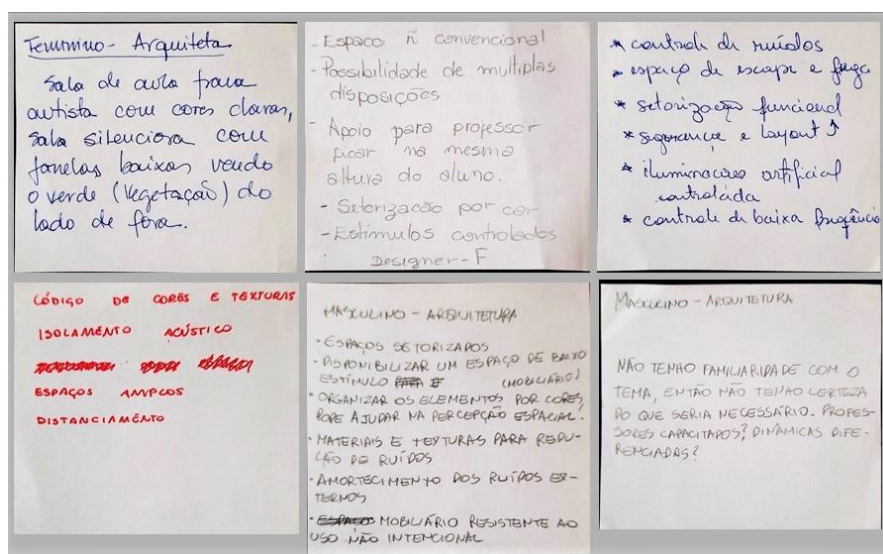 Feminino - Arquiteta
Sala de aula para
autista com cores claras,
sala silenciosa com
janelas baixas vendo
o verde (vegetação) do
lado de fora.
- Espaço ñ convencional
- Possibilidade de multiplas
disposições
- Apoio para professor
ficar na mesma
altura do aluno.
- Setorização por cor
- Estímulos controlados
Designer - F
* controle de ruídos
* espaço de escape e fuga
* setorização funcional
* segurança e layout ↑
* iluminacões artificial
controlada
* controle de baixa frequência
CÓDIGO DE CORES E TEXTURAS
ISOLAMENTO ACÚSTICO
ESPAÇOS AMPLOS
DISTANCIAMENTO
MASCULINO - ARQUITETURA
· ESPAÇOS SETORIZADOS
· DISPONIBILIZAR UM ESPAÇO DE BAIXO
ESTÍMULO (MOBILIÁRIO)
· ORGANIZAR OS ELEMENTOS POR CORES,
PODE AJUDAR NA PERCEPÇÃO ESPACIAL.
· MATERIAIS E TEXTURAS PARA REDU-
ÇÃO DE RUÍDOS
· AMORTECIMENTO DOS RUÍDOS EX-
TERNOS
· MOBILIÁRIO RESISTENTE AO
USO NÃO INTENCIONAL
MASCULINO - ARQUITETURA
NÃO TENHO FAMILIARIDADE COM O
TEMA, ENTÃO NÃO TENHO CERTEZA
DO QUE SERIA NECESSÁRIO. PROFES-
SORES CAPACITADOS? DINÂMICAS DIFE-
RENCIADAS?